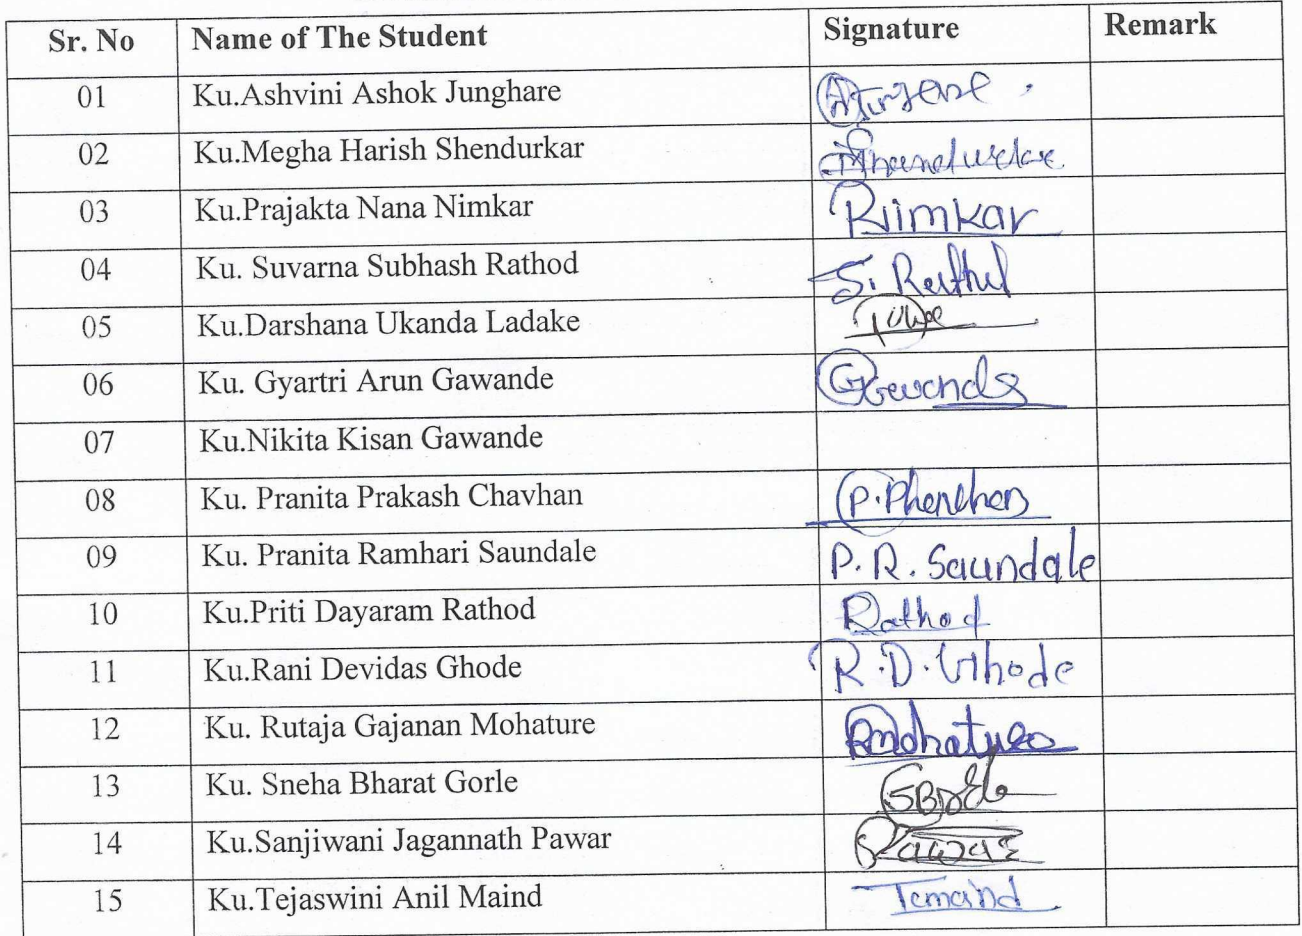 Sr. No Name of The Student Signature Remark
01 Ku.Ashvini Ashok Junghare
02 Ku.Megha Harish Shendurkar
03 Ku.Prajakta Nana Nimkar
04 Ku. Suvarna Subhash Rathod S.
05 Ku.Darshana Ukanda Ladake
06 Ku. Gyartri Arun Gawande
07 Ku.Nikita Kisan Gawande
08 Ku. Pranita Prakash Chavhan
09 Ku. Pranita Ramhari Saundale P. R. Saundale
10 Ku.Priti Dayaram Rathod Rathod
11 Ku.Rani Devidas Ghode R.D. Ghode
12 Ku. Rutaja Gajanan Mohature
13 Ku. Sneha Bharat Gorle
14 Ku.Sanjiwani Jagannath Pawar
15 Ku.Tejaswini Anil Maind